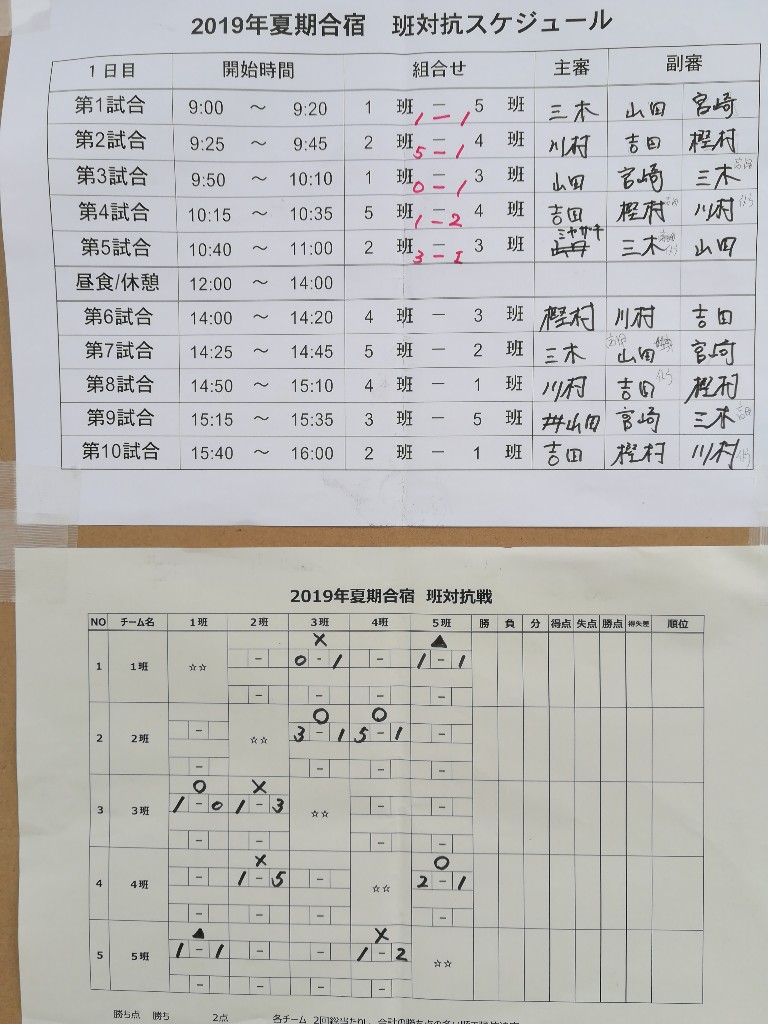 2019年夏期合宿　班対抗スケジュール
1日目 開始時間 組合せ 主審 副審
第1試合 9:00 ～ 9:20 1 班 － 5 班 1－1 三木 山田 宮崎
第2試合 9:25 ～ 9:45 2 班 － 4 班 5－1 川村 吉田 樫村
第3試合 9:50 ～ 10:10 1 班 － 3 班 0－1 山田 宮崎 三木
第4試合 10:15 ～ 10:35 5 班 － 4 班 1－2 吉田 樫村 川村
第5試合 10:40 ～ 11:00 2 班 － 3 班 3－1 ミヤザキ 三木 山田
昼食/休憩 12:00 ～ 14:00
第6試合 14:00 ～ 14:20 4 班 － 3 班 樫村 川村 吉田
第7試合 14:25 ～ 14:45 5 班 － 2 班 三木 山田 宮崎
第8試合 14:50 ～ 15:10 4 班 － 1 班 川村 吉田 樫村
第9試合 15:15 ～ 15:35 3 班 － 5 班 山田 宮崎 三木
第10試合 15:40 ～ 16:00 2 班 － 1 班 吉田 樫村 川村
2019年夏期合宿　班対抗戦
NO チーム名 1班 2班 3班 4班 5班 勝 負 分 得点 失点 勝点 得失差 順位
× ▲
1 1班 ☆☆ － 0－1 － 1－1
－ － － －
○ ○
2 2班 － ☆☆ 3－1 5－1 －
－ － － －
○ ×
3 3班 1－0 1－3 ☆☆ － －
－ － － －
× ○
4 4班 － 1－5 － ☆☆ 2－1
－ － － －
▲ ×
5 5班 1－1 － － 1－2 ☆☆
－ － － －
勝ち点 勝ち 2点 各チーム 2回総当たり